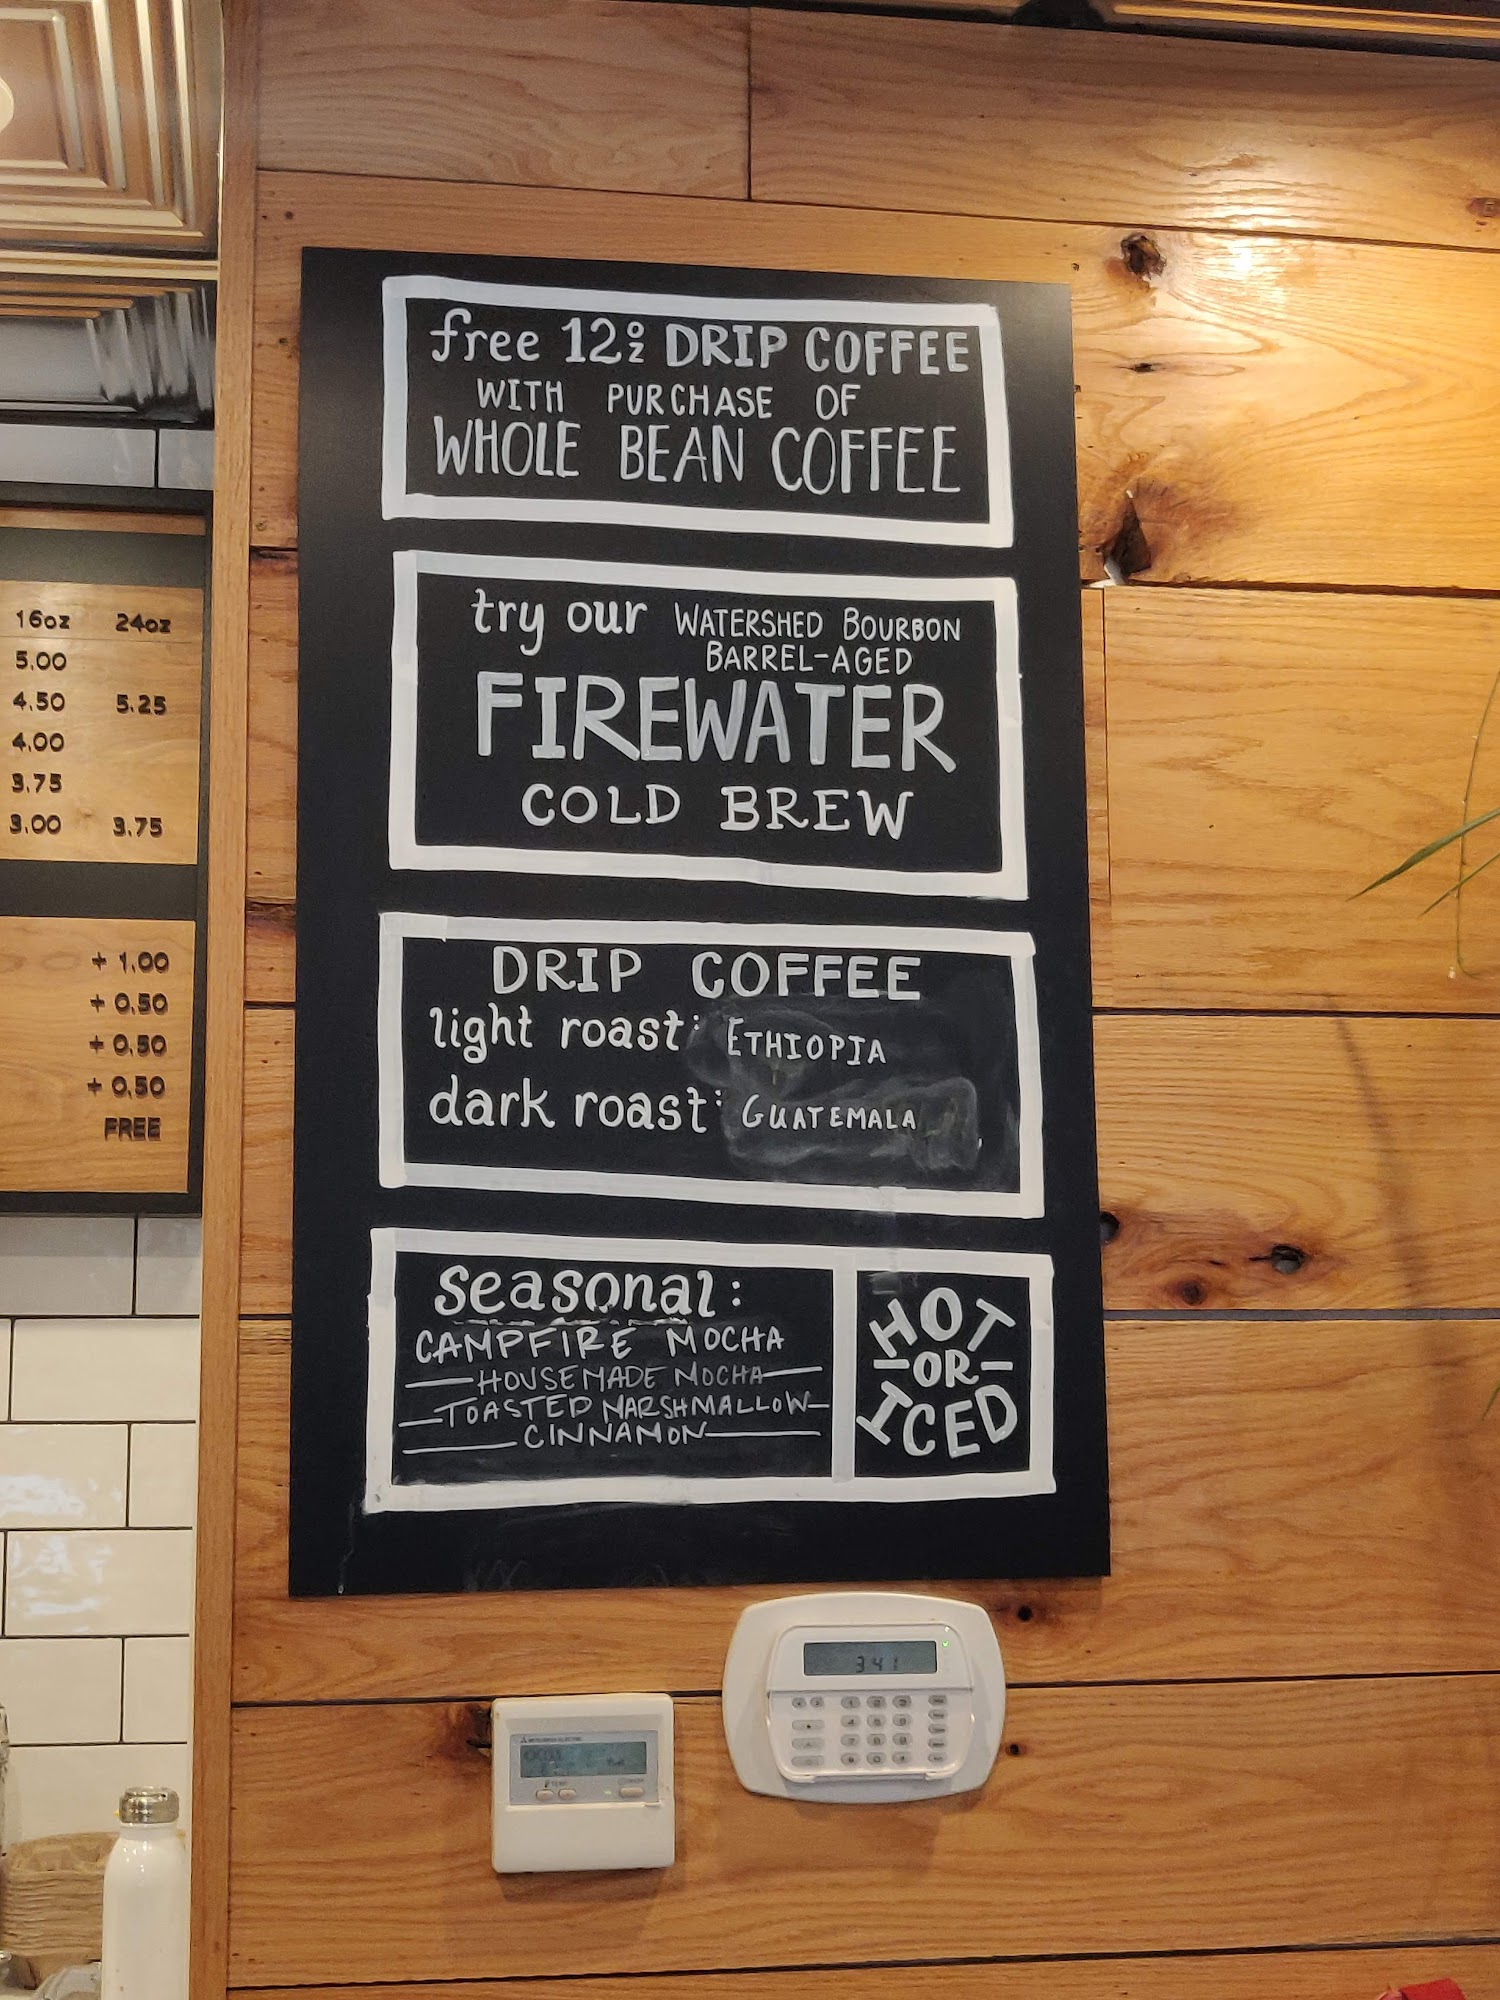 free 12oz DRIP COFFEE
WITH PURCHASE OF
WHOLE BEAN COFFEE
try our WATERSHED BOURBON
BARREL-AGED
FIREWATER
COLD BREW
DRIP COFFEE
light roast: ETHIOPIA
dark roast: GUATEMALA
seasonal:
CAMPFIRE MOCHA
HOUSEMADE MOCHA
TOASTED MARSHMALLOW
CINNAMON
HOT
-OR-
ICED
16oz 24oz
5.00
4.50 5.25
4.00
3.75
3.00 3.75
+ 1.00
+ 0.50
+ 0.50
+ 0.50
FREE
3:41
MITSUBISHI ELECTRIC